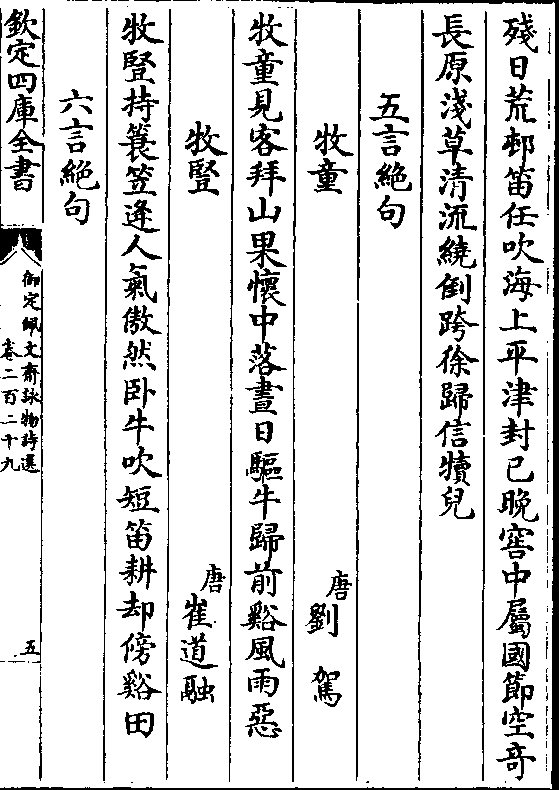 殘日荒邨笛任吹海上平津封已晚窖中屬國節空竒
長原淺草清流繞倒跨徐歸信犢兒
五言絶句
牧童
唐劉駕
牧童見客拜山果懷中落晝日驅牛歸前谿風雨惡
牧豎
唐崔道融
牧豎持簑笠逢人氣傲然卧牛吹短笛耕却傍谿田
六言絶句
欽定四庫全書
御定佩文齋詠物詩選
卷二百二十九
五